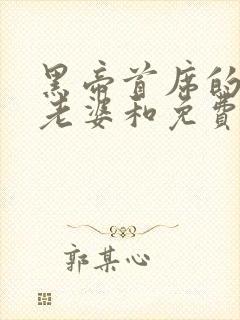 黑帝首席的
老婆和免费
郭某心